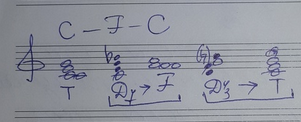 C – F – C
T D7 → F D4/3 → T